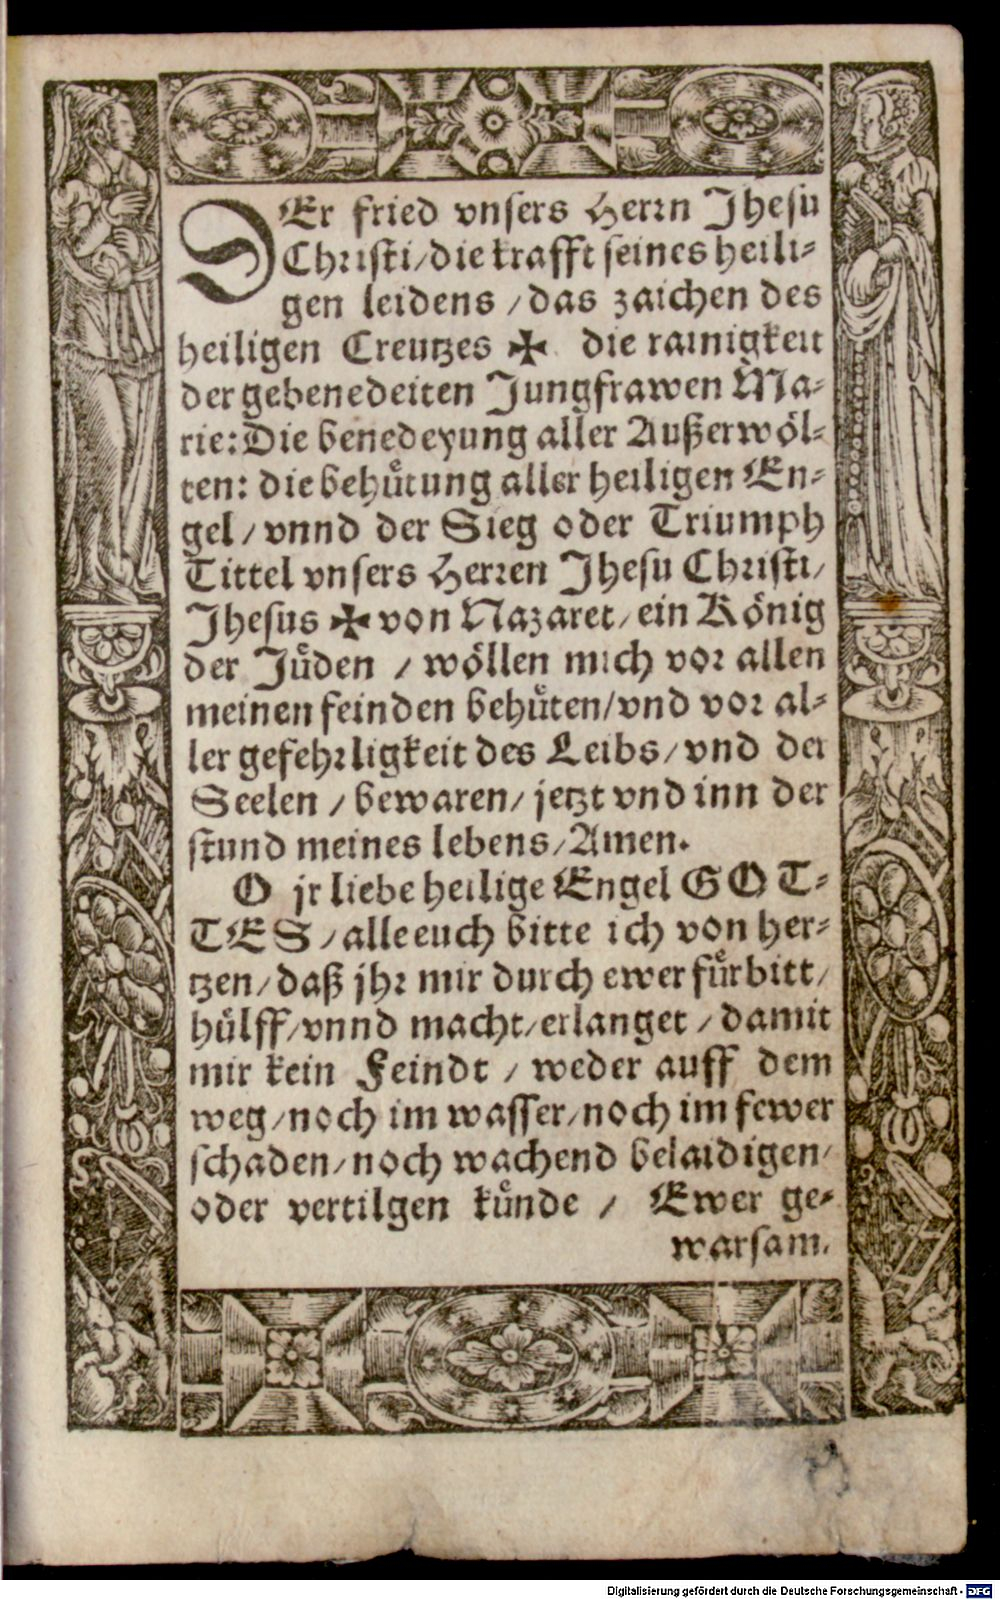 DEr fried vnsers Herrn Jhesu
Christi/die krafft seines heili-
gen leidens /das zaichen des
heiligen Creutzes ✠ die rainigkeit
der gebenedeiten Jungfrawen Ma-
rie: Die benedeyung aller Außerwöl-
ten: die behuͤtung aller heiligen En-
gel/ vnnd der Sieg oder Triumph
Tittel vnsers Herren Jhesu Christi/
Jhesus ✠ von Nazaret/ein König
der Juͤden /wöllen mich vor allen
meinen feinden behuͤten/vnd vor al-
ler gefehrligkeit des Leibs/vnd der
Seelen /bewaren/ jetzt vnd inn der
stund meines lebens/Amen.
O jr liebe heilige Engel GOT-
TES /alle euch bitte ich von her-
tzen/daß jhr mir durch ewer fuͤrbitt/
huͤlff/vnnd macht/erlanget /damit
mir kein Feindt /weder auff dem
weg/noch im wasser/noch im fewer
schaden/noch wachend belaidigen/
oder vertilgen kuͤnde / Ewer ge-
warsam.
Digitalisierung gefördert durch die Deutsche Forschungsgemeinschaft - DFG